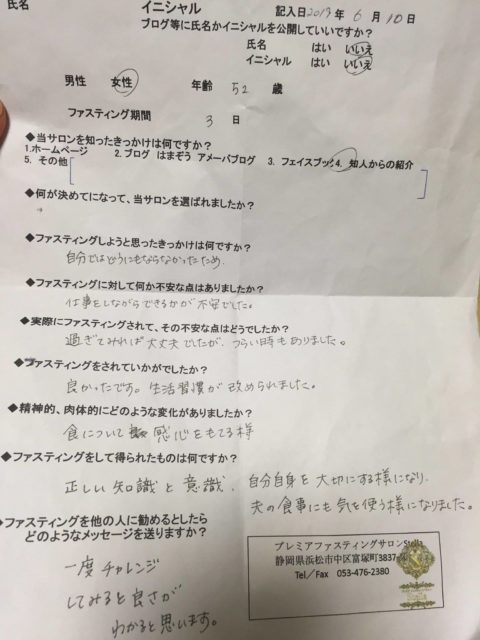 氏名 イニシャル 記入日2019年6月10日
ブログ等に氏名かイニシャルを公開していいですか？
氏名 はい いいえ
イニシャル はい いいえ
男性 女性 年齢 52 歳
ファスティング期間 3 日
◆当サロンを知ったきっかけは何ですか？
1.ホームページ 2.ブログ はまぞう アメーバブログ 3. フェイスブック 4. 知人からの紹介
5. その他
◆何が決めてになって、当サロンを選ばれましたか？
◆ファスティングしようと思ったきっかけは何ですか？
自分ではどうにもならなかったため。
◆ファスティングに対して何か不安な点はありましたか？
仕事をしながらできるかが不安でした。
◆実際にファスティングされて、その不安な点はどうでしたか？
過ぎてみれば大丈夫でしたが、つらい時もありました。
◆ファスティングをされていかがでしたか？
良かったです。生活習慣が改められました。
◆精神的、肉体的にどのような変化がありましたか？
食について 感心をもてる様
◆ファスティングをして得られたものは何ですか？
正しい知識と意識、自分自身を大切にする様になり、
夫の食事にも気を使う様になりました。
◆ファスティングを他の人に勧めるとしたら
どのようなメッセージを送りますか？
一度チャレンジ
してみると良さが
わかると思います。
プレミアファスティングサロン
静岡県浜松市中区富塚町3837
Tel／Fax 053-476-2380